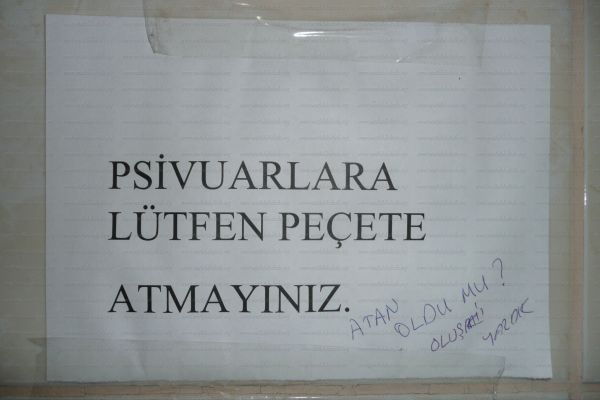 PSİVUARLARA
LÜTFEN PEÇETE
ATMAYINIZ.
ATAN OLDU MU?